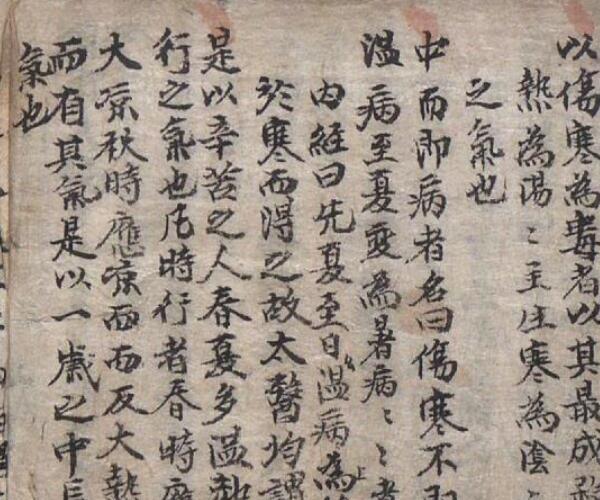 以傷寒為毒者以其最成
熱為陽〻主生寒為陰〻
之氣也
中而即病者名曰傷寒不
温病至夏變為暑病〻〻者
内經曰先夏至日温病為
於寒而得之故太醫均謂
是以辛苦之人春夏多温熱
行之氣也凡時行者春時應
大凉秋時應凉而而反大熱
而有其氣是以一歲之中長
氣也